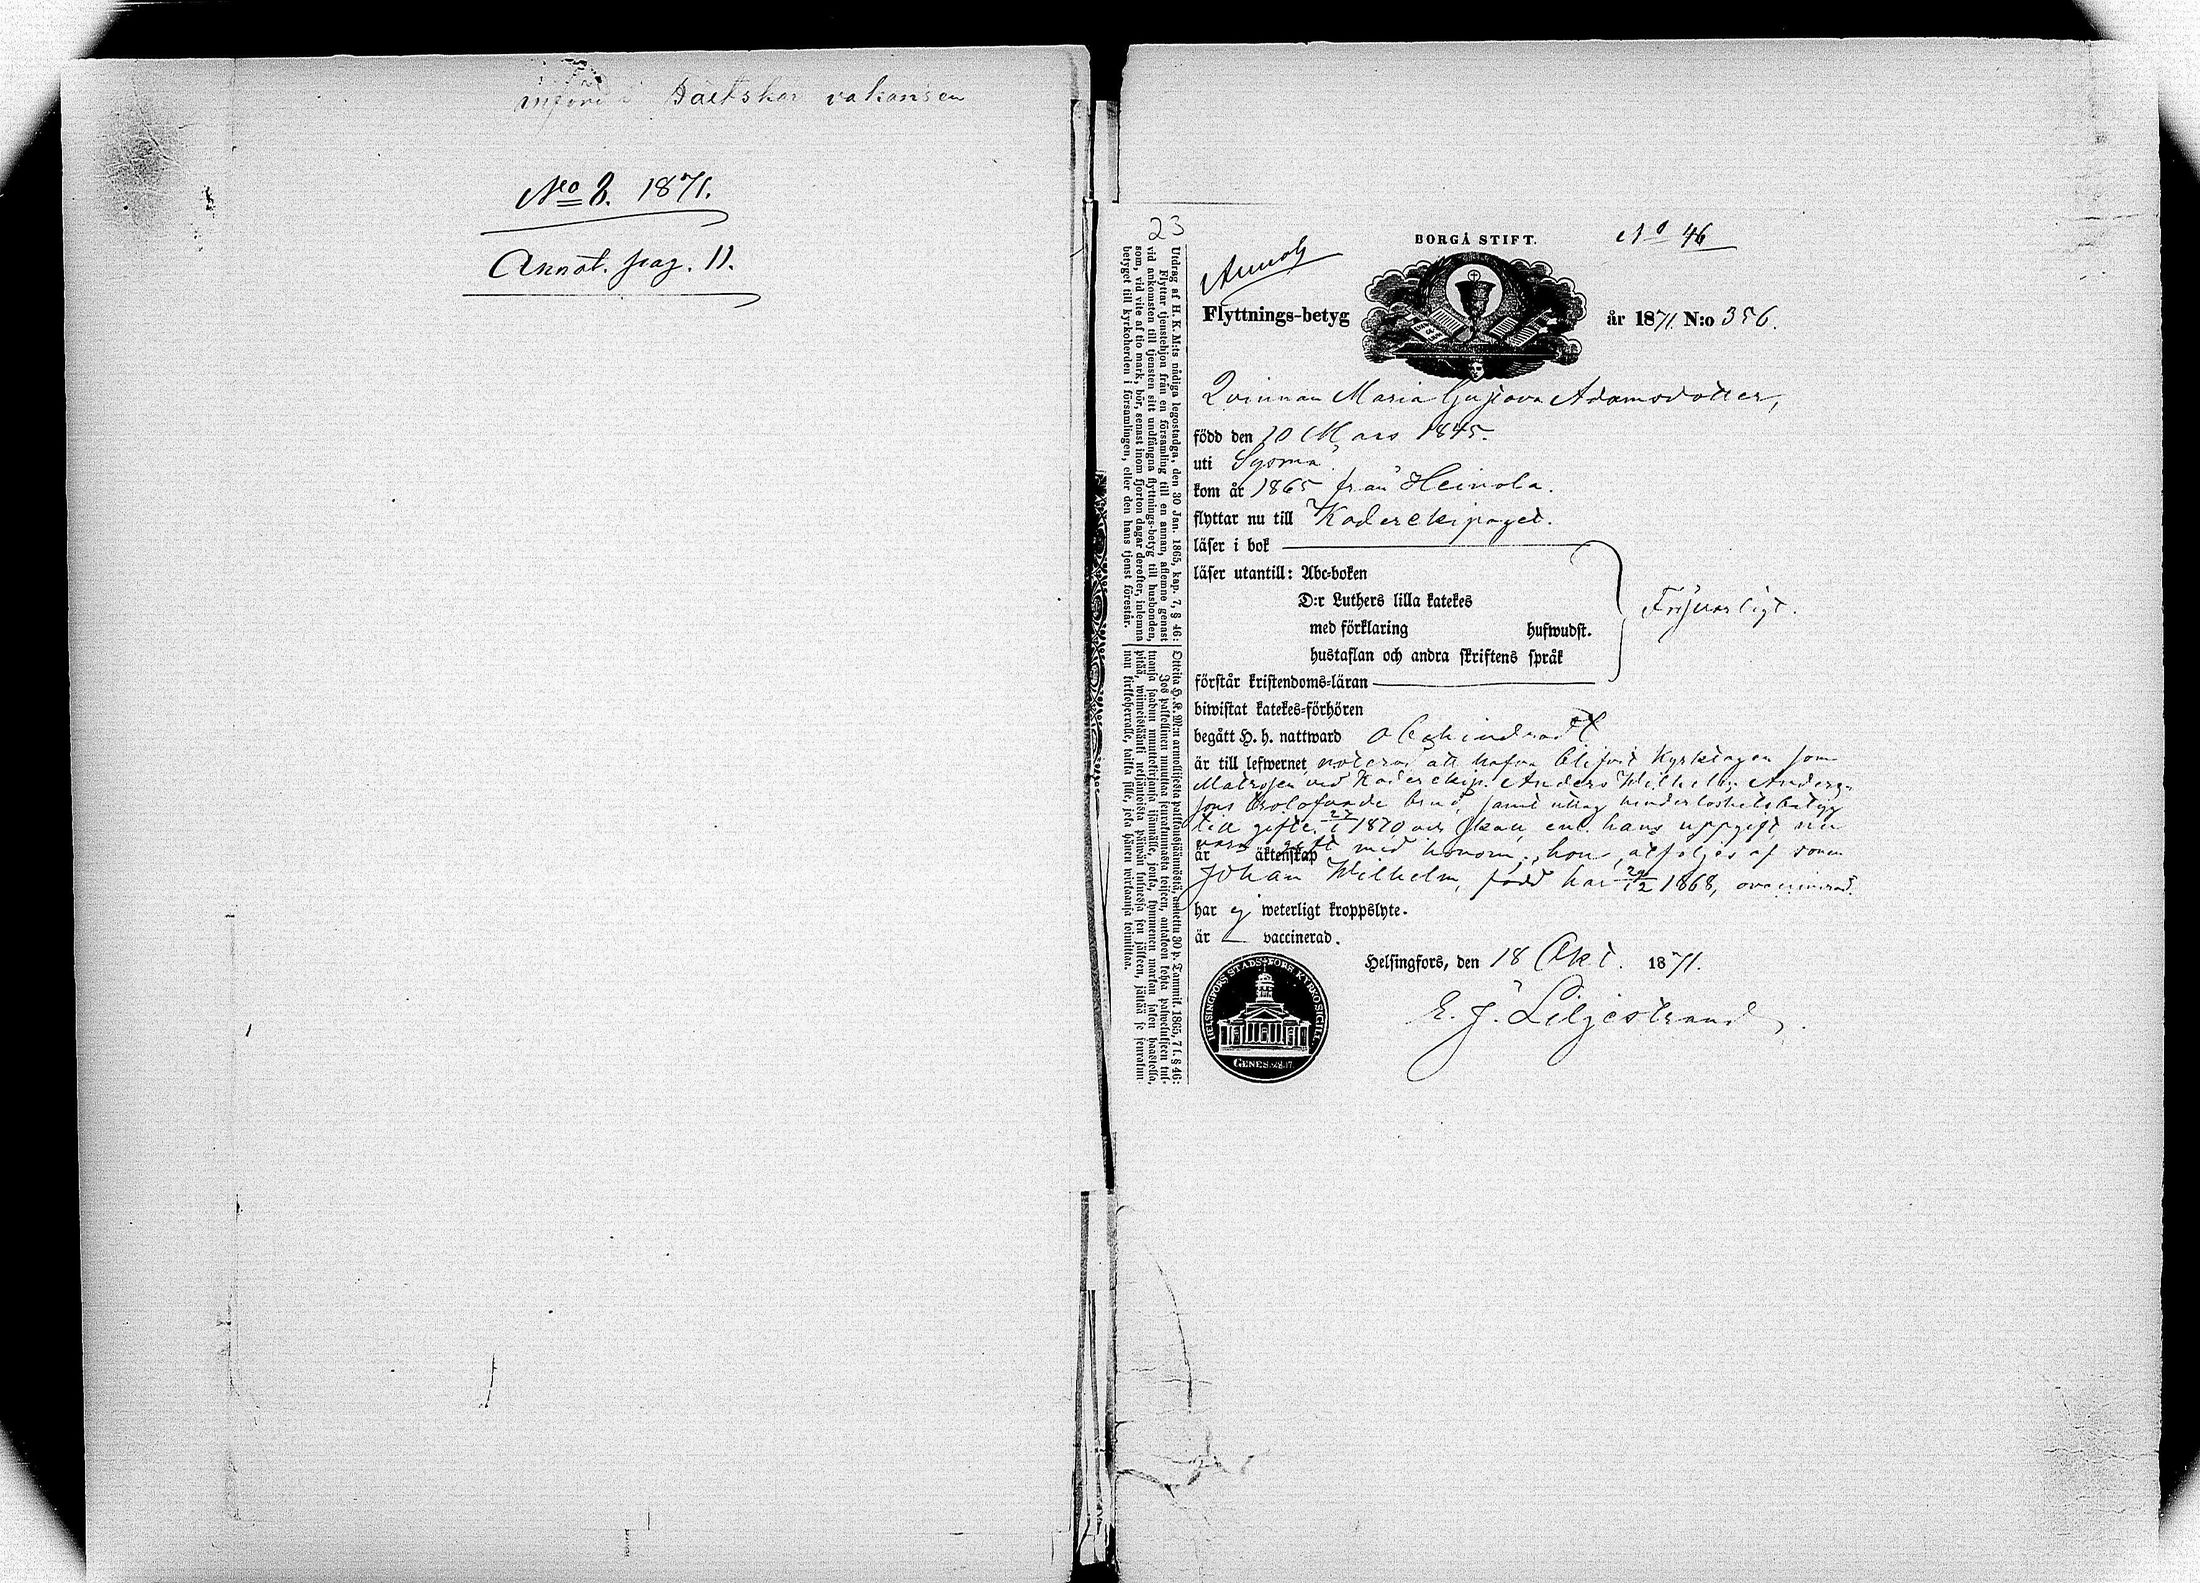 införd i Båtskar vakansen
No 8. 1871.
Annot. pag. 11.
23
Annot
BORGÅ STIFT.
No 46
Flyttnings-betyg
år 1871 N:o 356.
Utdrag af H. K. M:ts nådiga legostadga, den 30 Jan. 1865, kap. 7, § 46:
Flyttar tjenstehjon från en församling till en annan, aflemne genast
vid ankomsten till tjensten sitt undfångna flyttnings-betyg till husbonden,
som, vid vite af tio mark, bör, senast inom fjorton dagar derefter, inlemna
betyget till kyrkoherden i församlingen, eller den hans tjenst förestår.
Otteita H. K. M:n armollisesta palkkaussäännöstä, annettu 30 p. Tammik. 1865, 7 l. § 46:
Jos palkollinen muuttaa seurakunnasta toiseen, antakoon kohta palwelukseen tul-
tuansa saadun muuttokirjansa isännälle, jonka, kymmenen markan sakon haastolla,
pitää, wiimeistäänki neljäntoista päiwän kuluessa sen jälkeen, jättää se seurakun-
nan kirkkoherralle, taikka sille, joka hänen wirkaansa toimittaa.
Qvinnan Maria Gustava Adamsdotter,
född den 10 Mars 1845.
uti Sysmä.
kom år 1865 från Heinola.
flyttar nu till Kaderekipaget.
läser i bok
läser utantill: Abc-boken
D:r Luthers lilla katekes
med förklaring hufwudst.
hustaflan och andra skriftens språk
förstår kristendoms-läran
Försvarligt.
biwistat katekes-förhören
begått H. h. nattward obehindrad
är till lefwernet noterad att hafva blifvit kyrktagen som
Matrosen vid Kaderekip. Anders Wilhelm Anders-
sons trolofvade brud, samt uttag hinderlöshetsbetyg
till gifte 1870 och skall enl. hans uppgift nu
vara gift med honom; hon åtföljes af sonen
är äktenskap
Johan Wilhelm, född här 1868, ovaccinerad.
har ej weterligt kroppslyte.
är vaccinerad.
Helsingfors, den 18 Okt. 1871.
E. J. Liljestrand
HELSINGFORS STADSFÖRS KYRKOSIGILL
GENES. 28.17